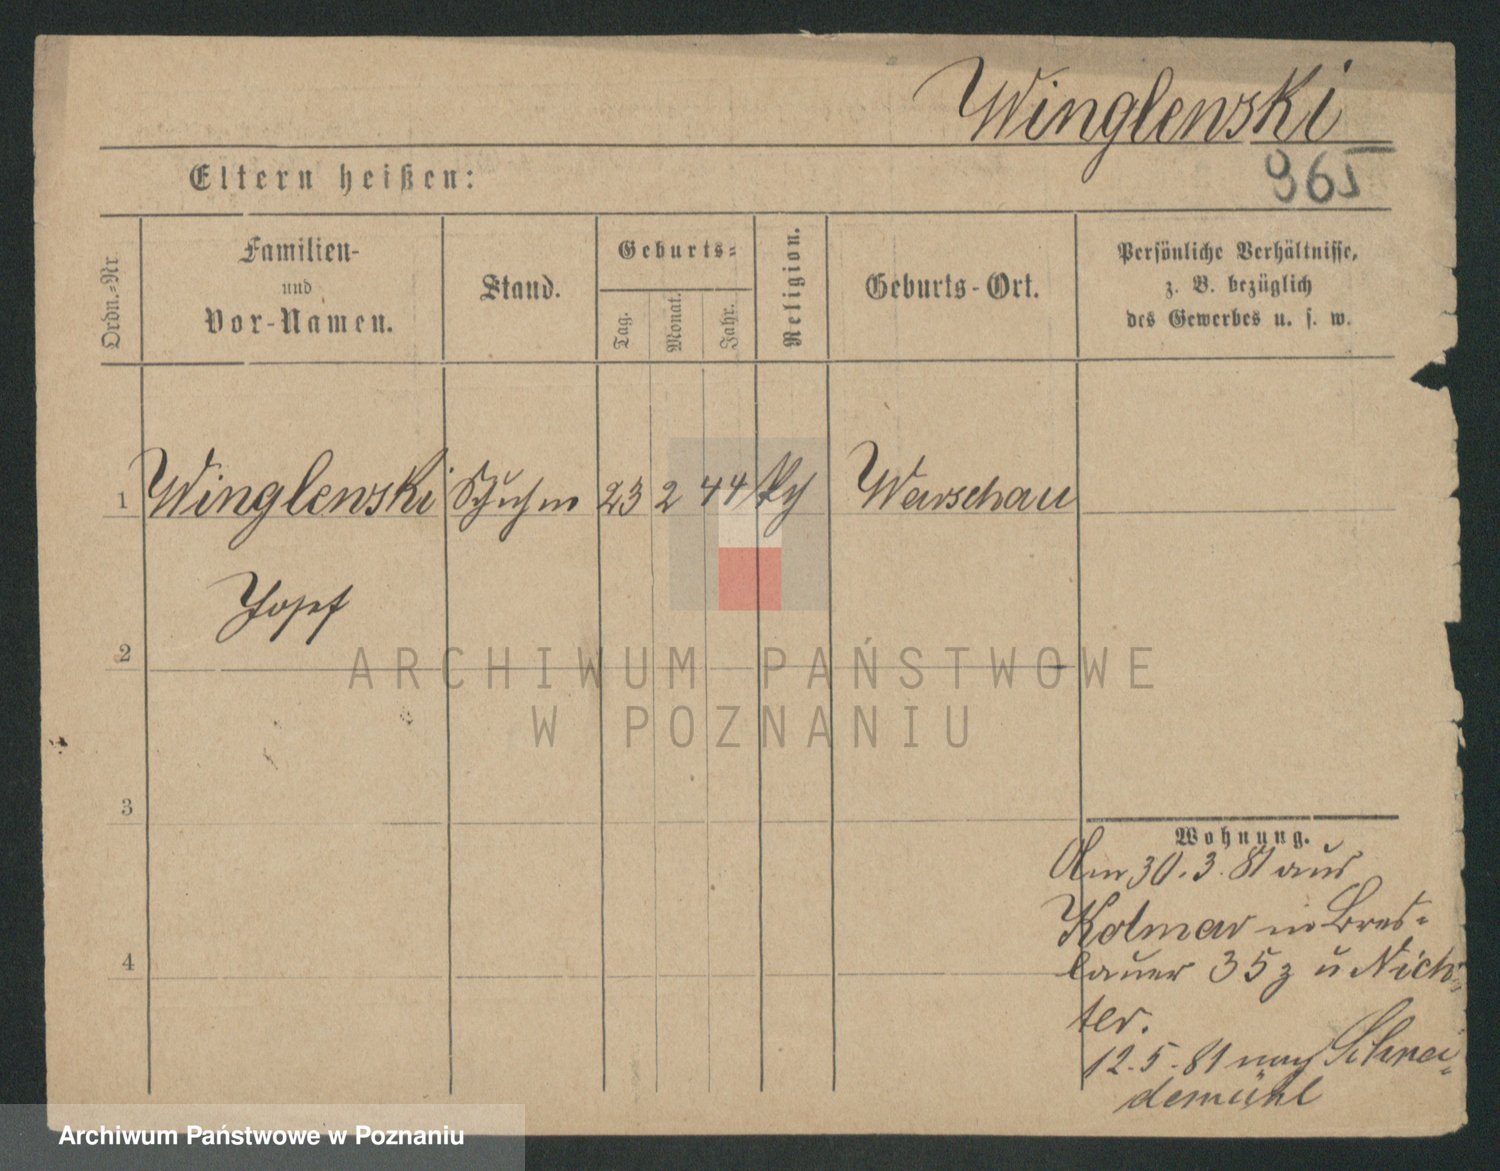 Winglewski
965
Eltern heißen:
Ordn.-Nr
Familien-
und
Vor-Namen.
Stand.
Geburts-
Tag.
Monat.
Jahr.
Religion.
Geburts-Ort.
Persönliche Verhältnisse,
z. B. bezüglich
des Gewerbes u. s. w.
1 Winglewski Schuhm 23 2 44 Warschau
Josef
2
3
4
Wohnung.
Am 30.3.81 aus
Kolmar in Bres-
lauer 35 z
ter.
12.5.81 nach Schnei-
demühl
ARCHIWUM PAŃSTWOWE
W POZNANIU
Archiwum Państwowe w Poznaniu